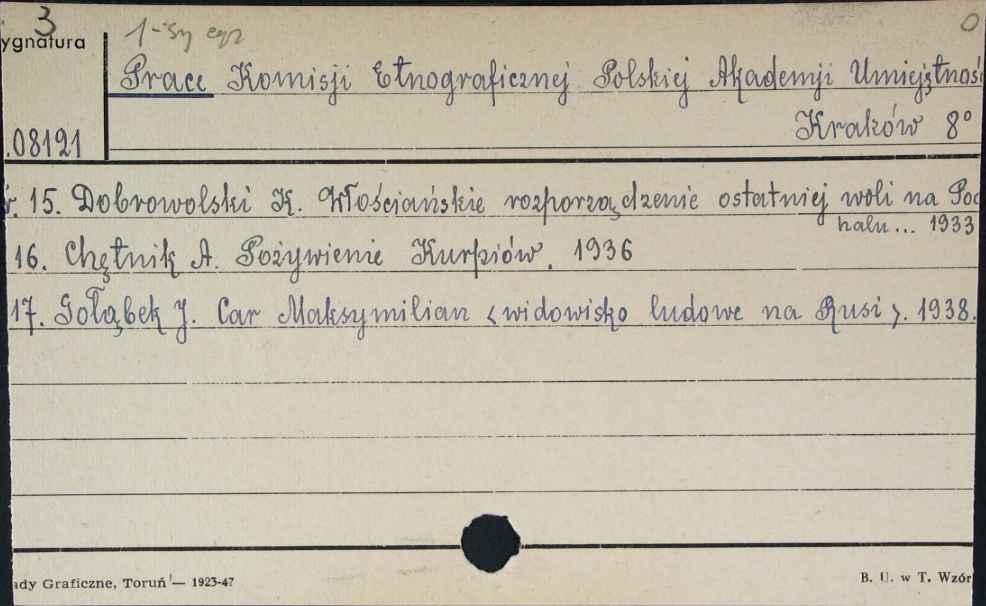 3
1-szy egz
0
ygnatura
Prace Komisji Etnograficznej Polskiej Akademji Umiejętnoś
Kraków 8°
.08121
r. 15. Dobrowolski K. Włościańskie rozporządzenie ostatniej woli na Pod
halu... 1933
16. Chętnik A. Pożywienie Kurpiów. 1936
17. Gołąbek J. Car Maksymilian <widowisko ludowe na Rusi>. 1938.
ady Graficzne, Toruń — 1923-47
B. U. w T. Wzór